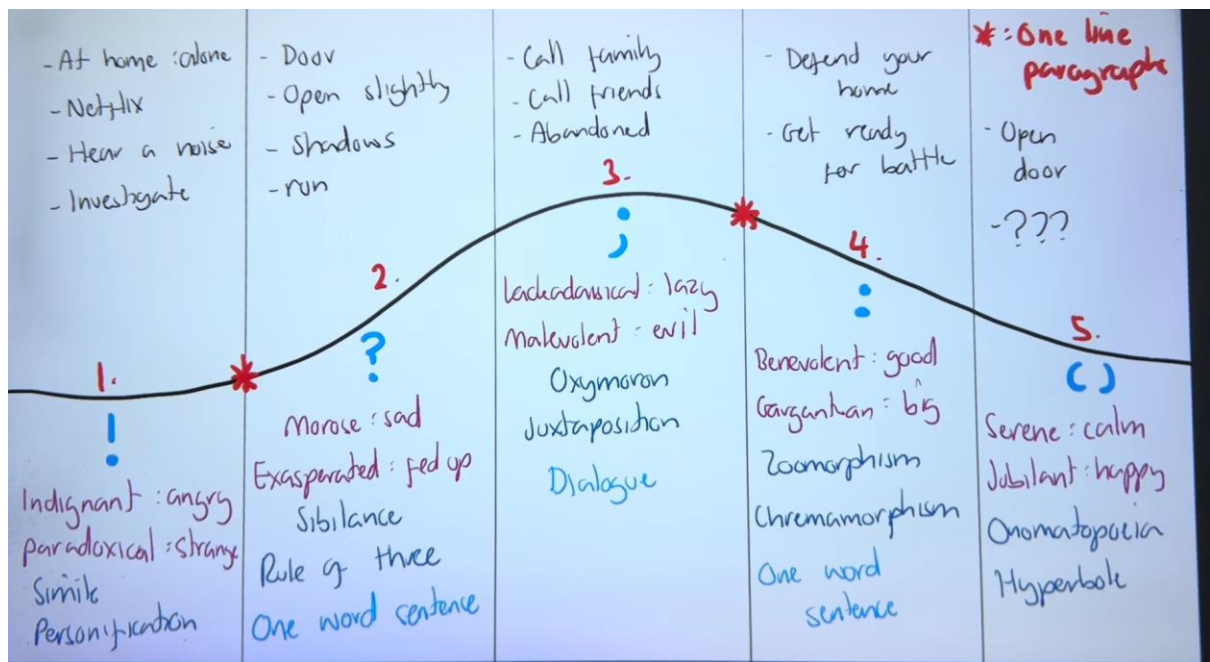 - At home : alone
- Netflix
- Hear a noise
- Investigate
1.
!
Indignant : angry
Paradoxical : strange
Simile
Personification
- Door
- Open slightly
- Shadows
- run
2.
?
Morose : sad
Exasperated : fed up
Sibilance
Rule of three
One word sentence
- Call family
- Call friends
- Abandoned
3.
;
Lackadaisical : lazy
Malevolent : evil
Oxymoron
Juxtaposition
Dialogue
- Defend your
home
- Get ready
for battle
4.
:
Benevolent : good
Gargantuan : big
Zoomorphism
Chremamorphism
One word
sentence
* : One line
paragraphs
- Open
door
- ???
5.
( )
Serene : calm
Jubilant : happy
Onomatopoeia
Hyperbole